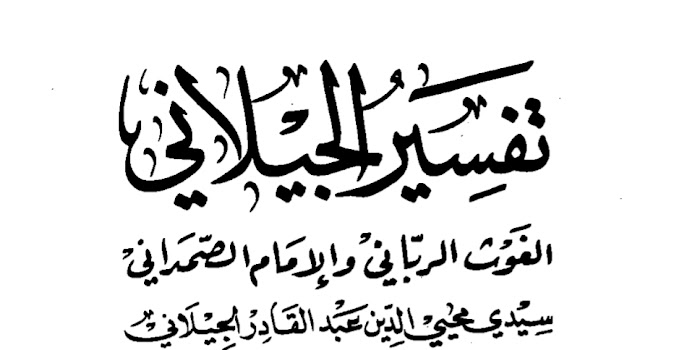 تفسير الجيلاني
الغوث الرباني والإمام الصمداني
سيدي محيي الدين عبد القادر الجيلاني